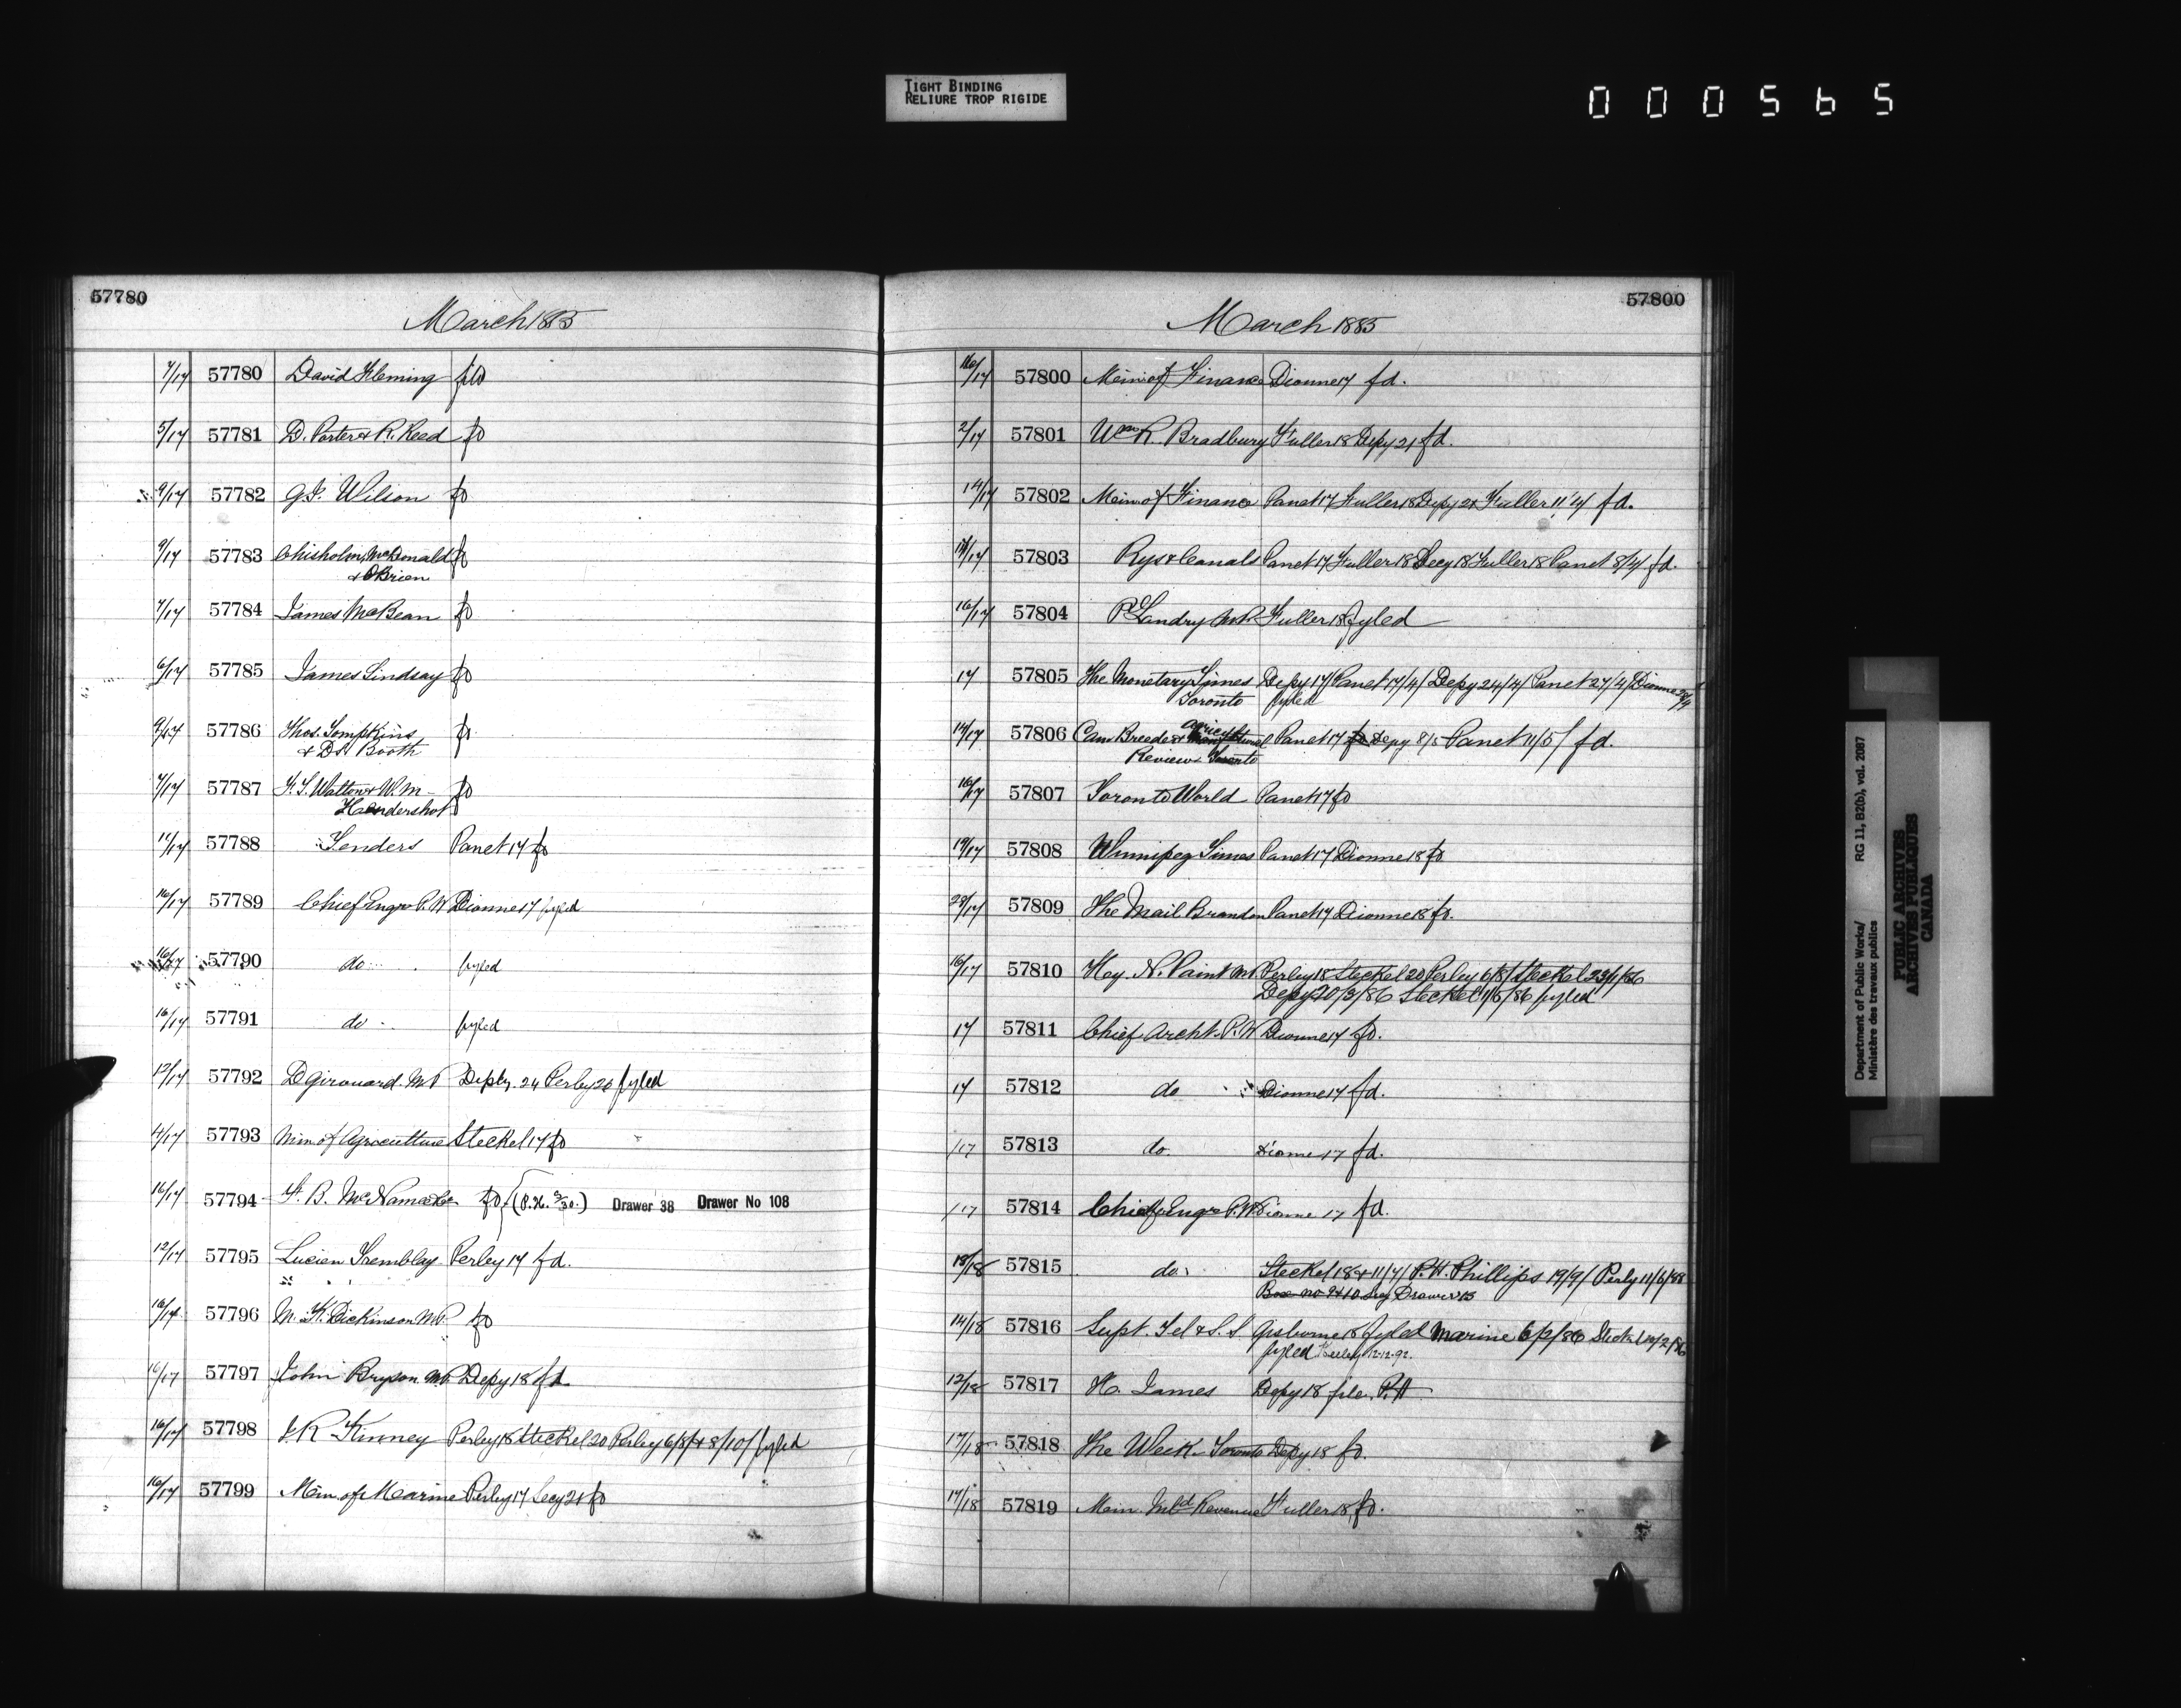 TIGHT BINDING
RELIURE TROP RIGIDE
000565
57780
March 1885
7/17 57780 David Fleming fd
5/17 57781 D. Porter & R. Reed fd
9/17 57782 G.J. Wilson fd
9/17 57783 Chisholm, McDonald fd
& OBrien
7/17 57784 James McBean fd
6/17 57785 James Lindsay fd
9/17 57786 Thos. Tompkins fd
& Booth
7/17 57787 Walton & W. M- fd
Hendershot
11/17 57788 Tenders Panet 17 fd
16/17 57789 Chief Engr P.W Dionne 17 fyled
16/17 57790 do fyled
16/17 57791 do fyled
12/17 57792 D Girouard. M.P Depty. 24 Perley 26 fyled
4/17 57793 Min of Agriculture Steckel 17 fd
16/17 57794 F. B. McNamee fd (P.H. 3/30.) Drawer 38 Drawer No 108
12/17 57795 Lucien Tremblay Perley 17 fd.
16/17 57796 M. K. Dickinson M.P. fd
16/17 57797 John Bryson M.P. Depy 18 fd.
16/17 57798 J.R Kinney Perley 18 Steckel 20 Perley 6/8/ & 8/10/ fyled
16/17 57799 Min. of Marine Perley 17 Secy 21 fd
57800
March 1885
16/17 57800 Min. of Finance Dionne 17 fd.
2/17 57801 Wm R. Bradbury Fuller 18 Depy 21 fd.
14/17 57802 Min. of Finance Panet 17 Fuller 18 Depy 21 Fuller 11/4 fd.
14/17 57803 Rys & Canals Panet 17 Fuller 18 Secy 18 Fuller 18 Panet 8/4/ fd.
16/17 57804 P. Landry M.P. Fuller 18 fyled
17 57805 The Monetary Times Depy 17/ Panet 17/4/ Depy 24/4/ Panet 27/4/ Dionne
Toronto fyled
14/17 57806 Can Breeder & Agricultural Panet 17 fd Depy 8/5 Panet 11/5/ fd.
Review Toronto
16/17 57807 Toronto World Panet 17 fd
14/17 57808 Winnipeg Times Panet 17 Dionne 18 fd
28/17 57809 The Mail Brandon Panet 17 Dionne 18 fd.
16/17 57810 Hy. N. Paint M.P. Perley 18 Steckel 20 Perley 6/8/ Steckel 23/1/86
Depy 20/3/86 Steckel 1/6/86 fyled
17 57811 Chief Archt. P.W Dionne 17 fd.
17 57812 do Dionne 17 fd.
/17 57813 do. Dionne 17 fd.
/17 57814 Chief Engr P.W Dionne 17 fd.
18/18 57815 do. Steckel 18 & 11/4/ P.H. Phillips 19/9/ Perly 11/6/88
Box no 9 & 10 Drawer 13
14/18 57816 Supt. Tel & S. S Gisborne 18 fyled Marine 6/2/86 Steckel 10/2/86
fyled Perley 12-12-92.
12/18 57817 H. James Depy 18 file P.H
17/18 57818 The Week Toronto Depy 18 fd.
17/18 57819 Min. Inld Revenue Fuller 18 fd.
Department of Public Works/
Ministère des travaux publics
RG 11, B2(b), vol. 2087
PUBLIC ARCHIVES
ARCHIVES PUBLIQUES
CANADA